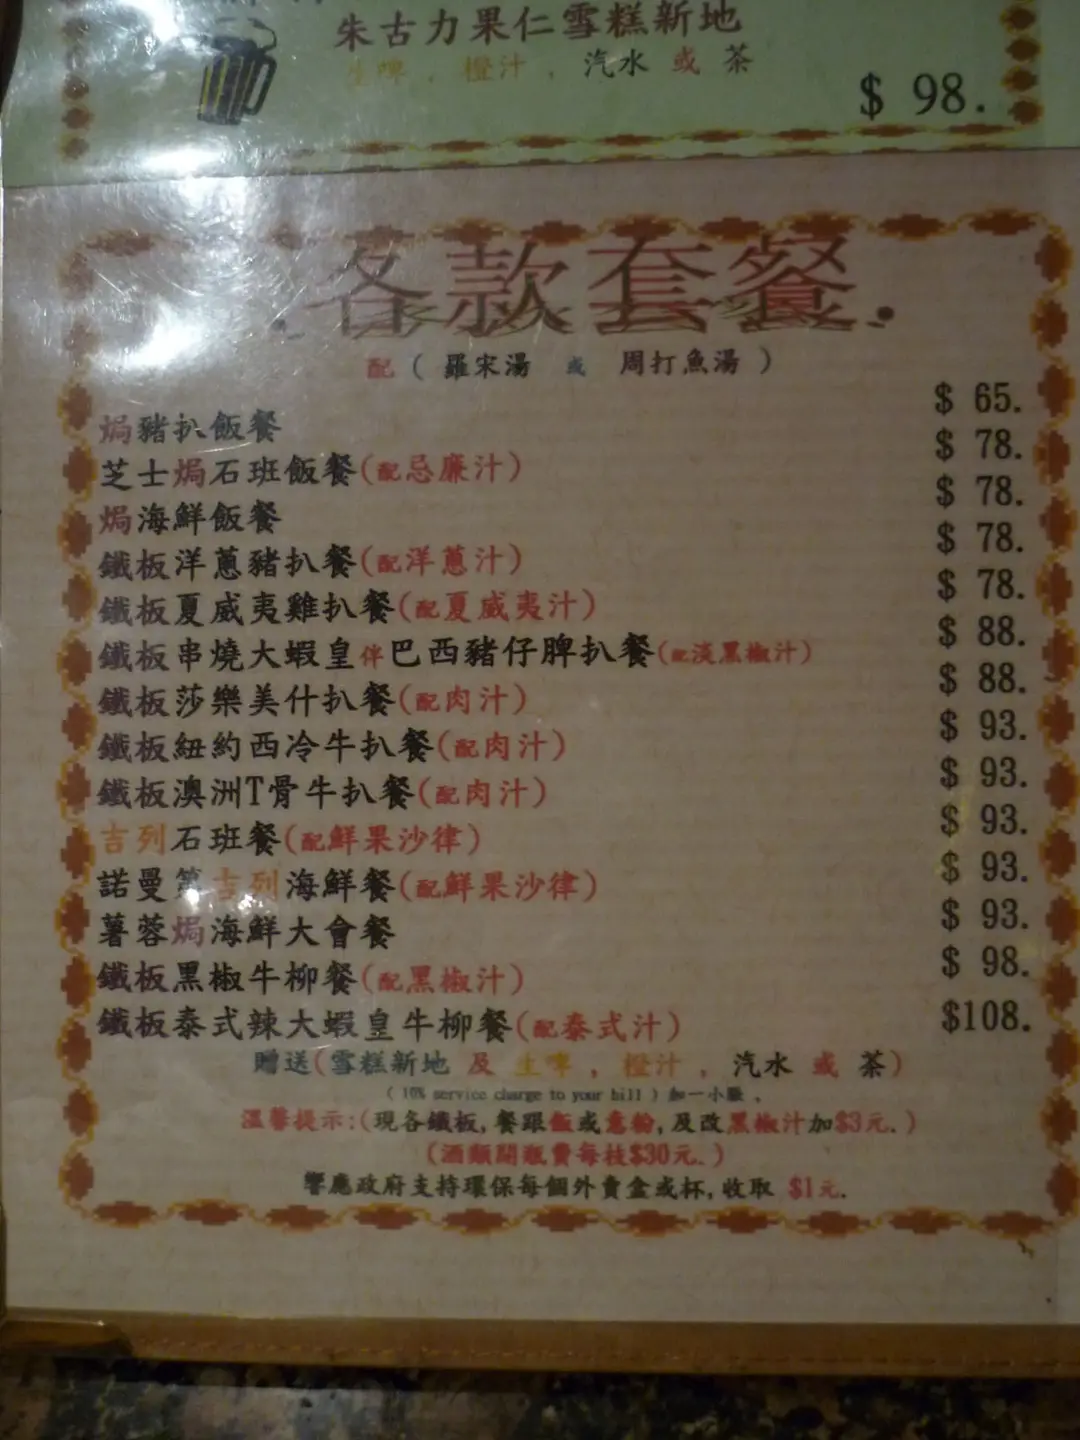 朱古力果仁雪糕新地
生啤 , 橙汁 , 汽水 或 茶
$ 98.
各款套餐.
配 ( 羅宋湯 或 周打魚湯 )
焗豬扒飯餐 $ 65.
芝士焗石班飯餐(配忌廉汁) $ 78.
焗海鮮飯餐 $ 78.
鐵板洋蔥豬扒餐(配洋蔥汁) $ 78.
鐵板夏威夷雞扒餐(配夏威夷汁) $ 78.
鐵板串燒大蝦皇伴巴西豬仔脾扒餐(配淡黑椒汁) $ 88.
鐵板莎樂美什扒餐(配肉汁) $ 88.
鐵板紐約西冷牛扒餐(配肉汁) $ 93.
鐵板澳洲T骨牛扒餐(配肉汁) $ 93.
吉列石班餐(配鮮果沙律) $ 93.
諾曼第吉列海鮮餐(配鮮果沙律) $ 93.
薯蓉焗海鮮大會餐 $ 93.
鐵板黑椒牛柳餐(配黑椒汁) $ 98.
鐵板泰式辣大蝦皇牛柳餐(配泰式汁) $108.
贈送(雪糕新地 及 生啤 , 橙汁 , 汽水 或 茶)
( 10% service charge to your bill ) 加一小賬 。
溫馨提示:(現各鐵板,餐跟飯或意粉,及改黑椒汁加$3元.)
(酒類開瓶費每枝$30元.)
響應政府支持環保每個外賣盒或杯,收取 $1元.